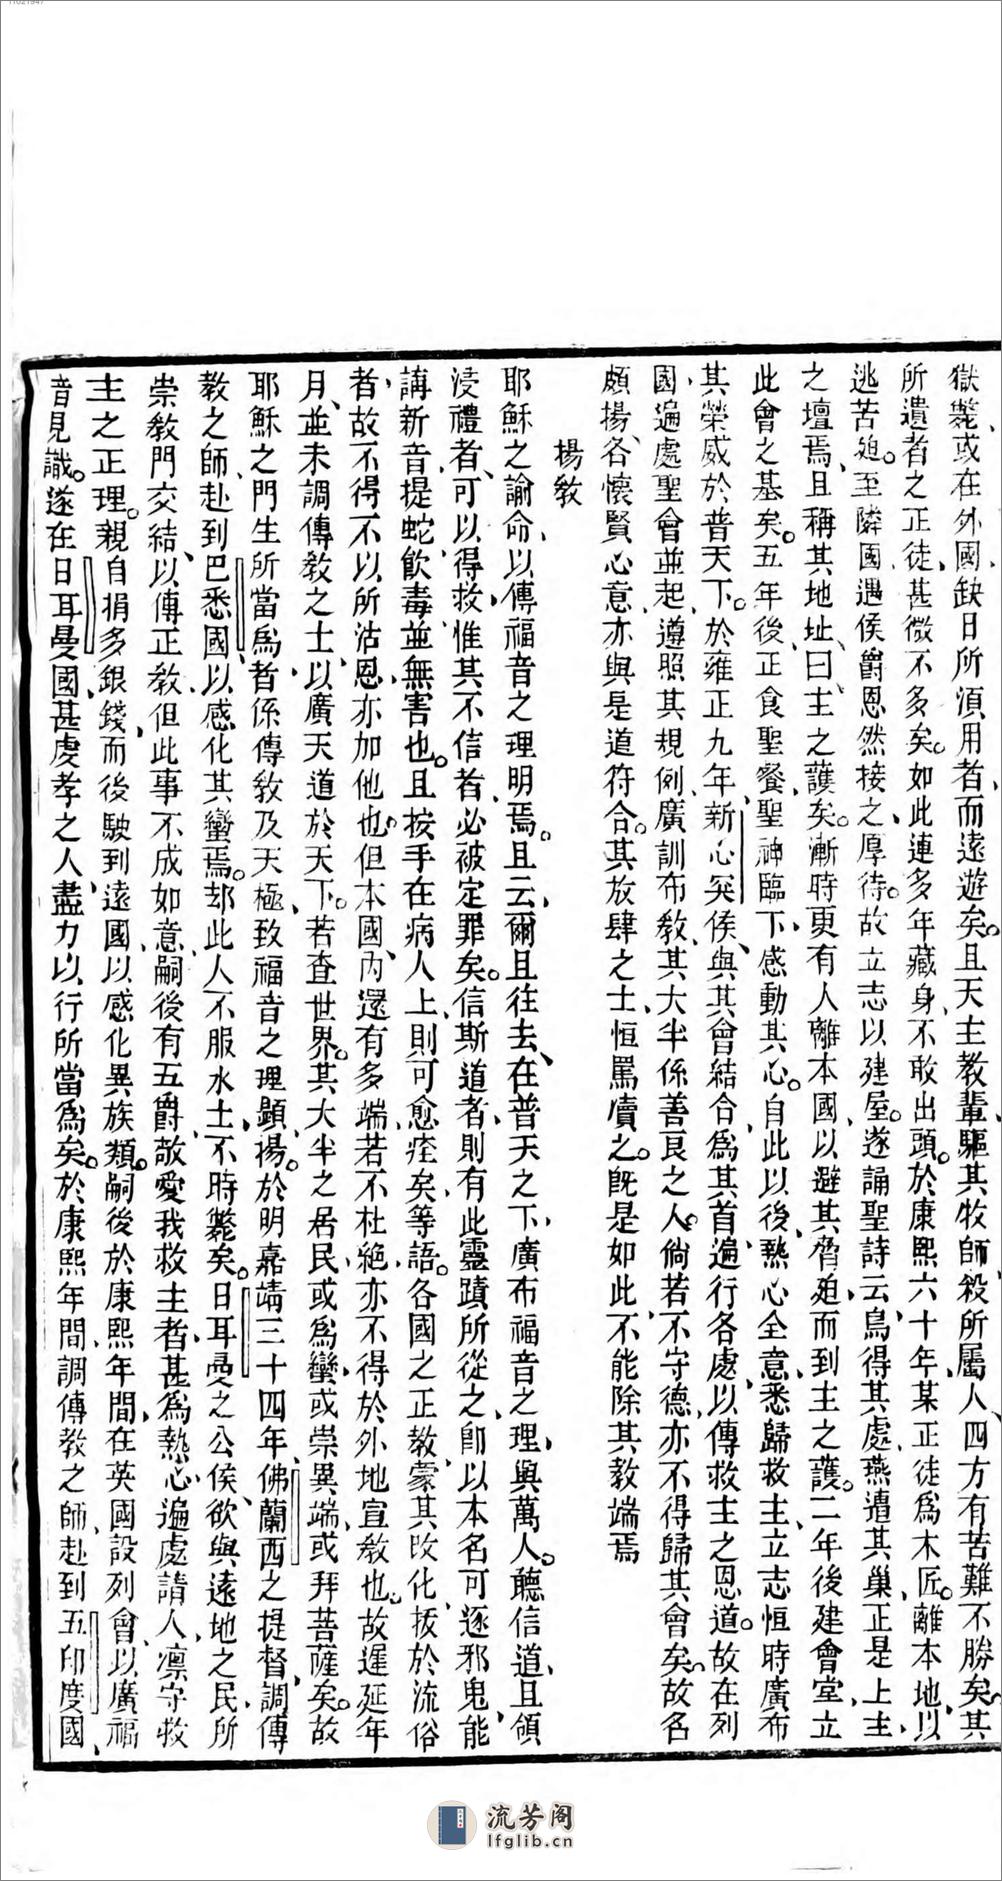 獄斃、或在外國缺日所須用者、而遠遊矣。且天主教輩、驅其牧師、殺所屬人、四方有苦難不勝矣、其
所遺者之正徒、甚微不多矣。如此連多年藏身、不敢出頭。於康熙六十年、某正徒爲木匠。離本地、以
逃苦廹。至隣國遇侯爵恩然接之、厚待。故立志以建屋。遂誦聖詩云、鳥得其處、燕遭其巢、正是上主
之壇焉、且稱其地址、曰主之護矣。漸時更有人離本國、以避其脅廹、而到主之護。二年後建會堂、立
此會之基矣。五年後正食聖餐、聖神臨下、感動其心。自此以後、熱心全意、悉歸救主、立志恒時廣布
其榮威於普天下。於雍正九年、新心冥侯、與其會結合、爲其首、遍行各處、以傳救主之恩道。故在列
國遍處聖會並起、遵照其規例、廣訓布敎、其大半係善良之人。倘若不守德、亦不得歸其會矣。故名
頗揚、各懷賢心意、亦與是道符合。其放肆之士、恒罵瀆之。旣是如此、不能除其教端焉
揚敎
耶穌之諭命、以傳福音之理明焉。且云、爾且往去、在普天之下、廣布福音之理、與萬人。聽信道、且領
浸禮者、可以得救、惟其不信者、必被定罪矣。信斯道者、則有此靈蹟所從之、卽以本名可逐邪鬼、能
講新音、提蛇飲毒、並無害也。且按手在病人上、則可愈痊矣、等語。各國之正教、蒙其改化、拔於流俗
者、故不得不以所沾恩、亦加他也。但本國內、還有多端、若不杜絶、亦不得於外地宣敎也。故遲延年
月、並未調傳敎之士、以廣天道於天下。若查世界。其大半之居民、或爲蠻、或崇異端、或拜菩薩矣。故
耶穌之門生所當爲者、係傳敎及天極、致福音之理顯揚。於明嘉靖三十四年、佛蘭西之提督、調傳
敎之師、赴到巴悉國、以感化其蠻焉。却此人不服水土、不時斃矣。日耳曼之公侯、欲與遠地之民所
崇敎門交結、以傳正敎、但此事不成如意、嗣後有五爵、敬愛我救主者、甚爲熱心、遍處請人、凛守救
主之正理。親自捐多銀錢、而後駛到遠國、以感化異族類。嗣後於康熙年間、在英國設列會、以廣福
音見識。遂在日耳曼國、甚虔孝之人、盡力以行所當爲矣。於康熙年間、調傳教之師、赴到五印度國、
流芳阁
lfglib.cn